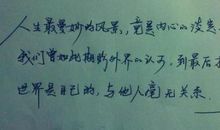 人生最曼妙的风景，竟是内心的淡
我们曾如此期盼外界的认可，到最后
世界是自己的，与他人毫无关系．